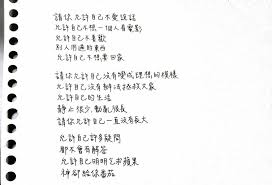 請你允許自己不愛說話
允許自己不想一個人看電影
允許自己不喜歡
別人用過的東西
允許自己不想要回家
請你允許自己沒有變成理想的模樣
允許自己沒有辦法拯救大家
允許自己的生活
靜止很少,動亂很長
請你允許自己一直沒有長大
允許自己許多疑問
都不會有解答
允許自己明明乞求蘋果
神卻給你番茄